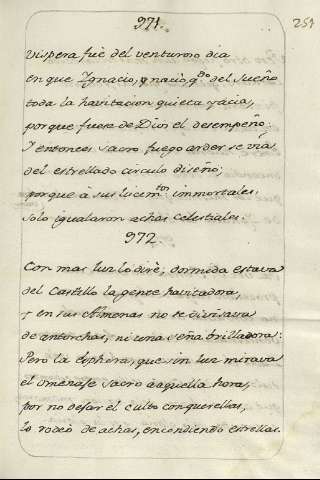 971.
259
Vispera fuè del venturoso dia
en que Ygnacio, nacio, q.do del sueño
toda la havitacion quieta yacia,
porque fuese de Dios el desempeño:
Y entonces sacro fuego arder se via
del estrellado circulo diseño;
porque à sus lucim.tos immortales
solo igualaron achas celestiales.
972.
Con mas luz lo dirè; dormida estava
del Castillo la gente havitadora,
y en sus Almenas no se divisava
de antorchas, ni una seña brilladora:
Pero la Esphera, que sin luz mirava
el omenage sacro àaquella hora,
por no dejar el culto con querellas,
lo rodeò de achas, encendiendo estrellas.